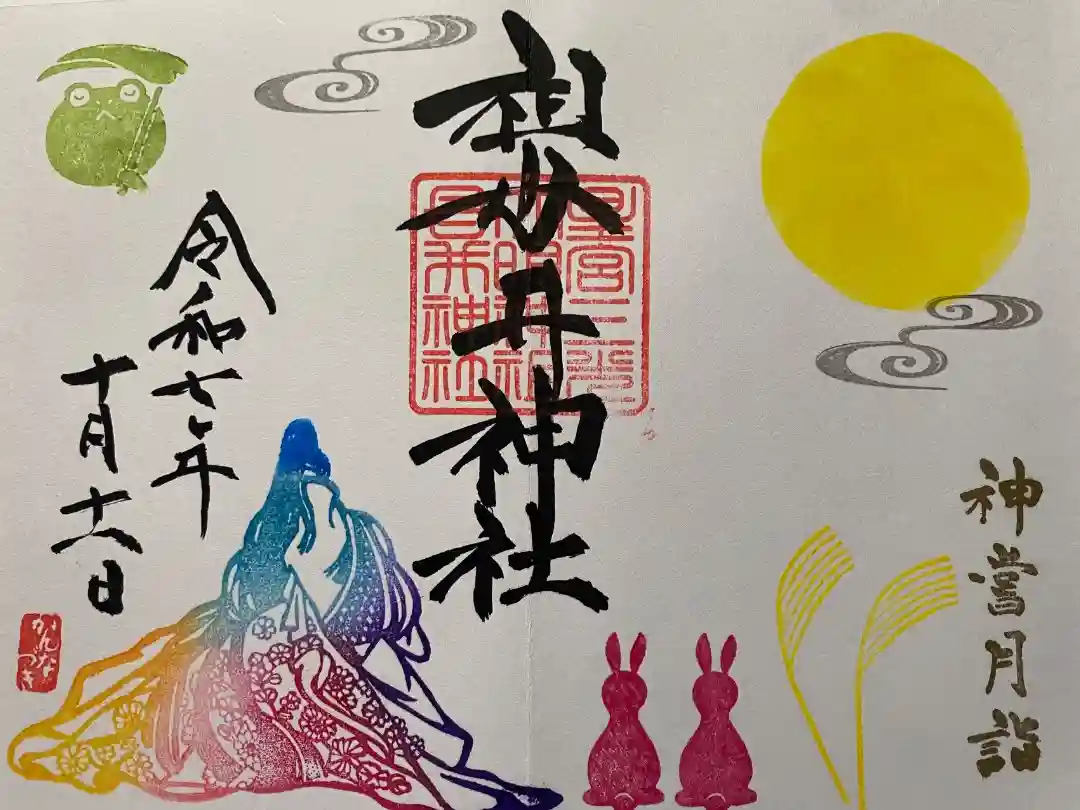 神嘗月詣
祖母井神社
令和七年
十月十六日
かんな
つき